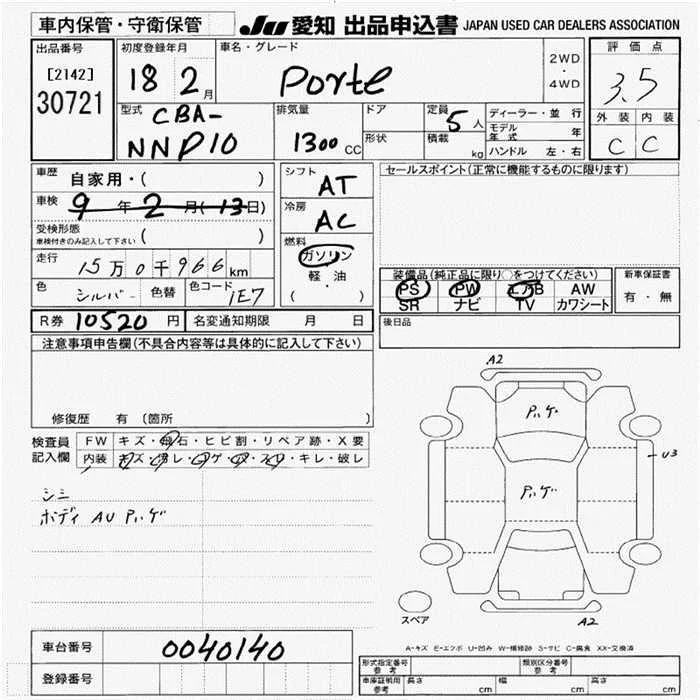 車内保管・守衛保管
JU 愛知 出品申込書 JAPAN USED CAR DEALERS ASSOCIATION
出品番号
[2142]
30721
初度登録年月
18 2月
車名・グレード
Porte
2WD
・
4WD
評価点
3.5
外装 内装
C C
型式
CBA-
NNP10
排気量
1300 CC
ドア
形状
定員 5人
積載 kg
ディーラー・並行
モデル年式 年
ハンドル 左・右
車歴 自家用・( )
車検 9年2月(13日)
受検形態
車検付きのみ記入して下さい ( )
走行 15万0千966km
色 シルバー 色替 色コード 1E7
シフト
AT
冷房
AC
燃料
ガソリン
軽・油
( ・ )
セールスポイント(正常に機能するものに限ります)
装備品(純正品に限り○をつけてください)
PS PW エアB AW
SR ナビ TV カワシート
新車保証書
有・無
R券 10520円 名変通知期限 月 日
後日品
注意事項申告欄(不具合内容等は具体的に記入して下さい)
修復歴 有(箇所 )
検査員
記入欄
FW キズ・飛石・ヒビ割・リペア跡・X要
内装
シミ
ボディ AU Pハゲ
A2
Pハゲ
U3
Pハゲ
スペア
A2
A-キズ E-エクボ U-凹み W-補修跡 S-サビ C-腐食 XX-交換済
車台番号 0040140
登録番号
形式指定番号
参考
類別区分番号
参考
車庫証明用
参考
長さ cm 幅 cm 高さ cm